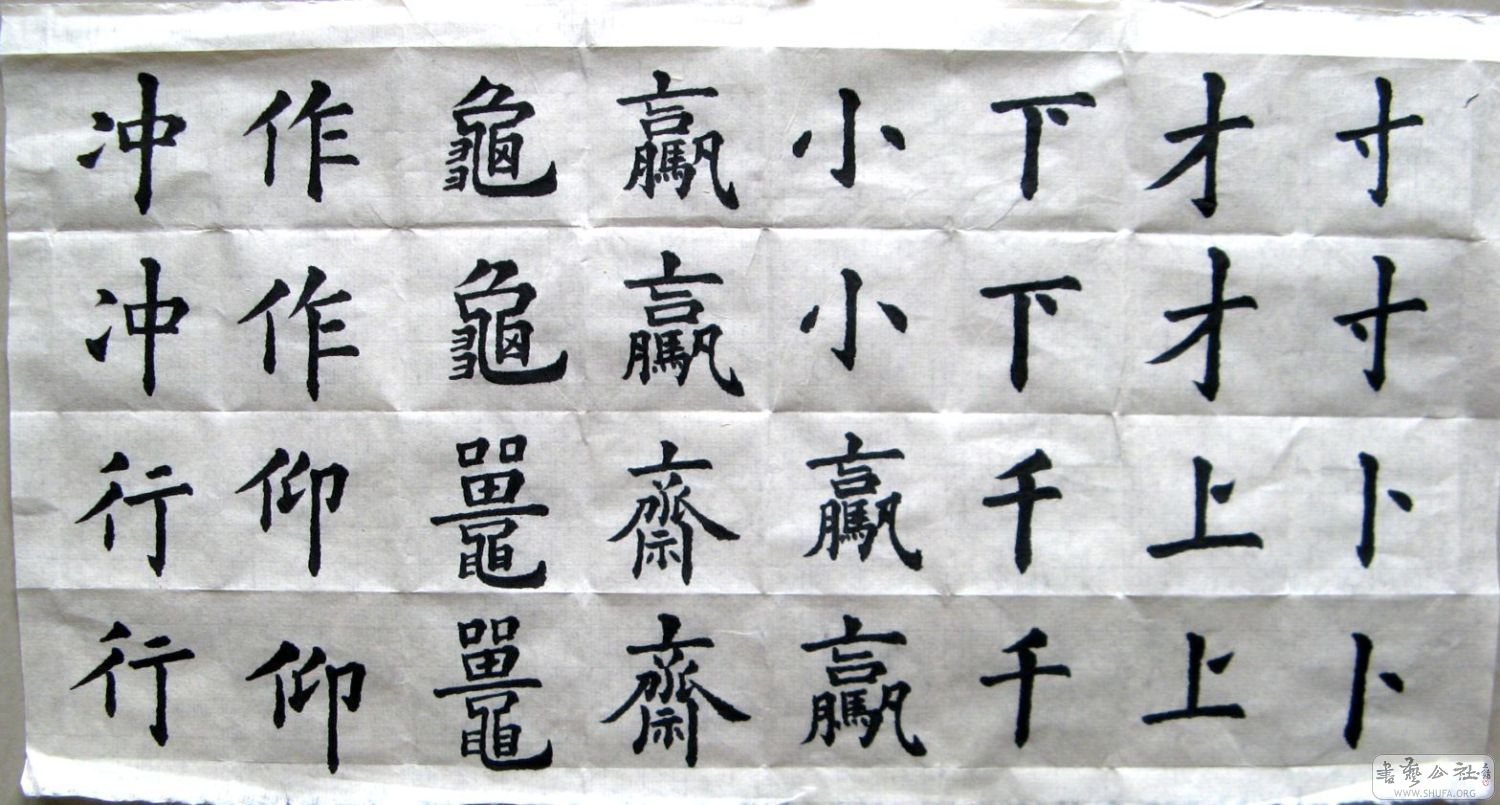 寸寸卜卜
才才上上
下下千千
小小驘驘
驘驘齋齋
龜龜鼉鼉
作作仰仰
冲冲行行
書藝公社
WWW.SHUFA.ORG